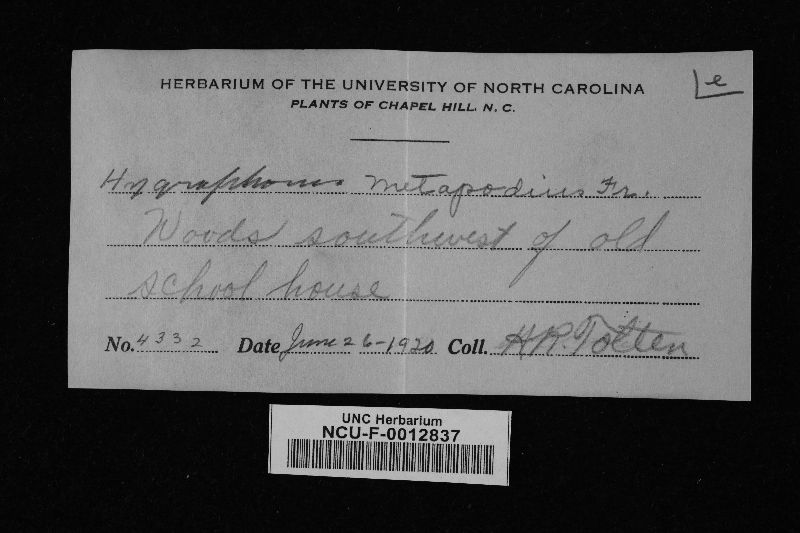 HERBARIUM OF THE UNIVERSITY OF NORTH CAROLINA
e
PLANTS OF CHAPEL HILL, N. C.
Hygrophorus metapodius Fr.
Woods southwest of old
school house
No. 4332 Date June 26-1920 Coll. H.R. Totten
UNC Herbarium
NCU-F-0012837